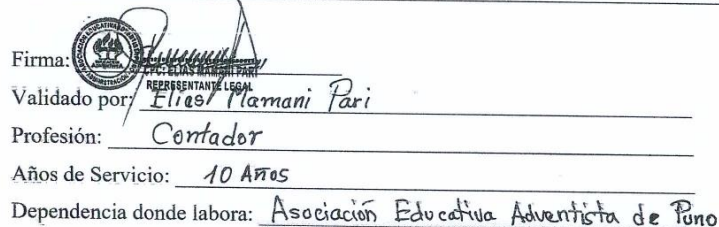 Firma:
CPC. ELIAS MAMANI PARI
REPRESENTANTE LEGAL
Validado por: Elias Mamani Pari
Profesión: Contador
Años de Servicio: 10 Años
Dependencia donde labora: Asociación Educativa Adventista de Puno